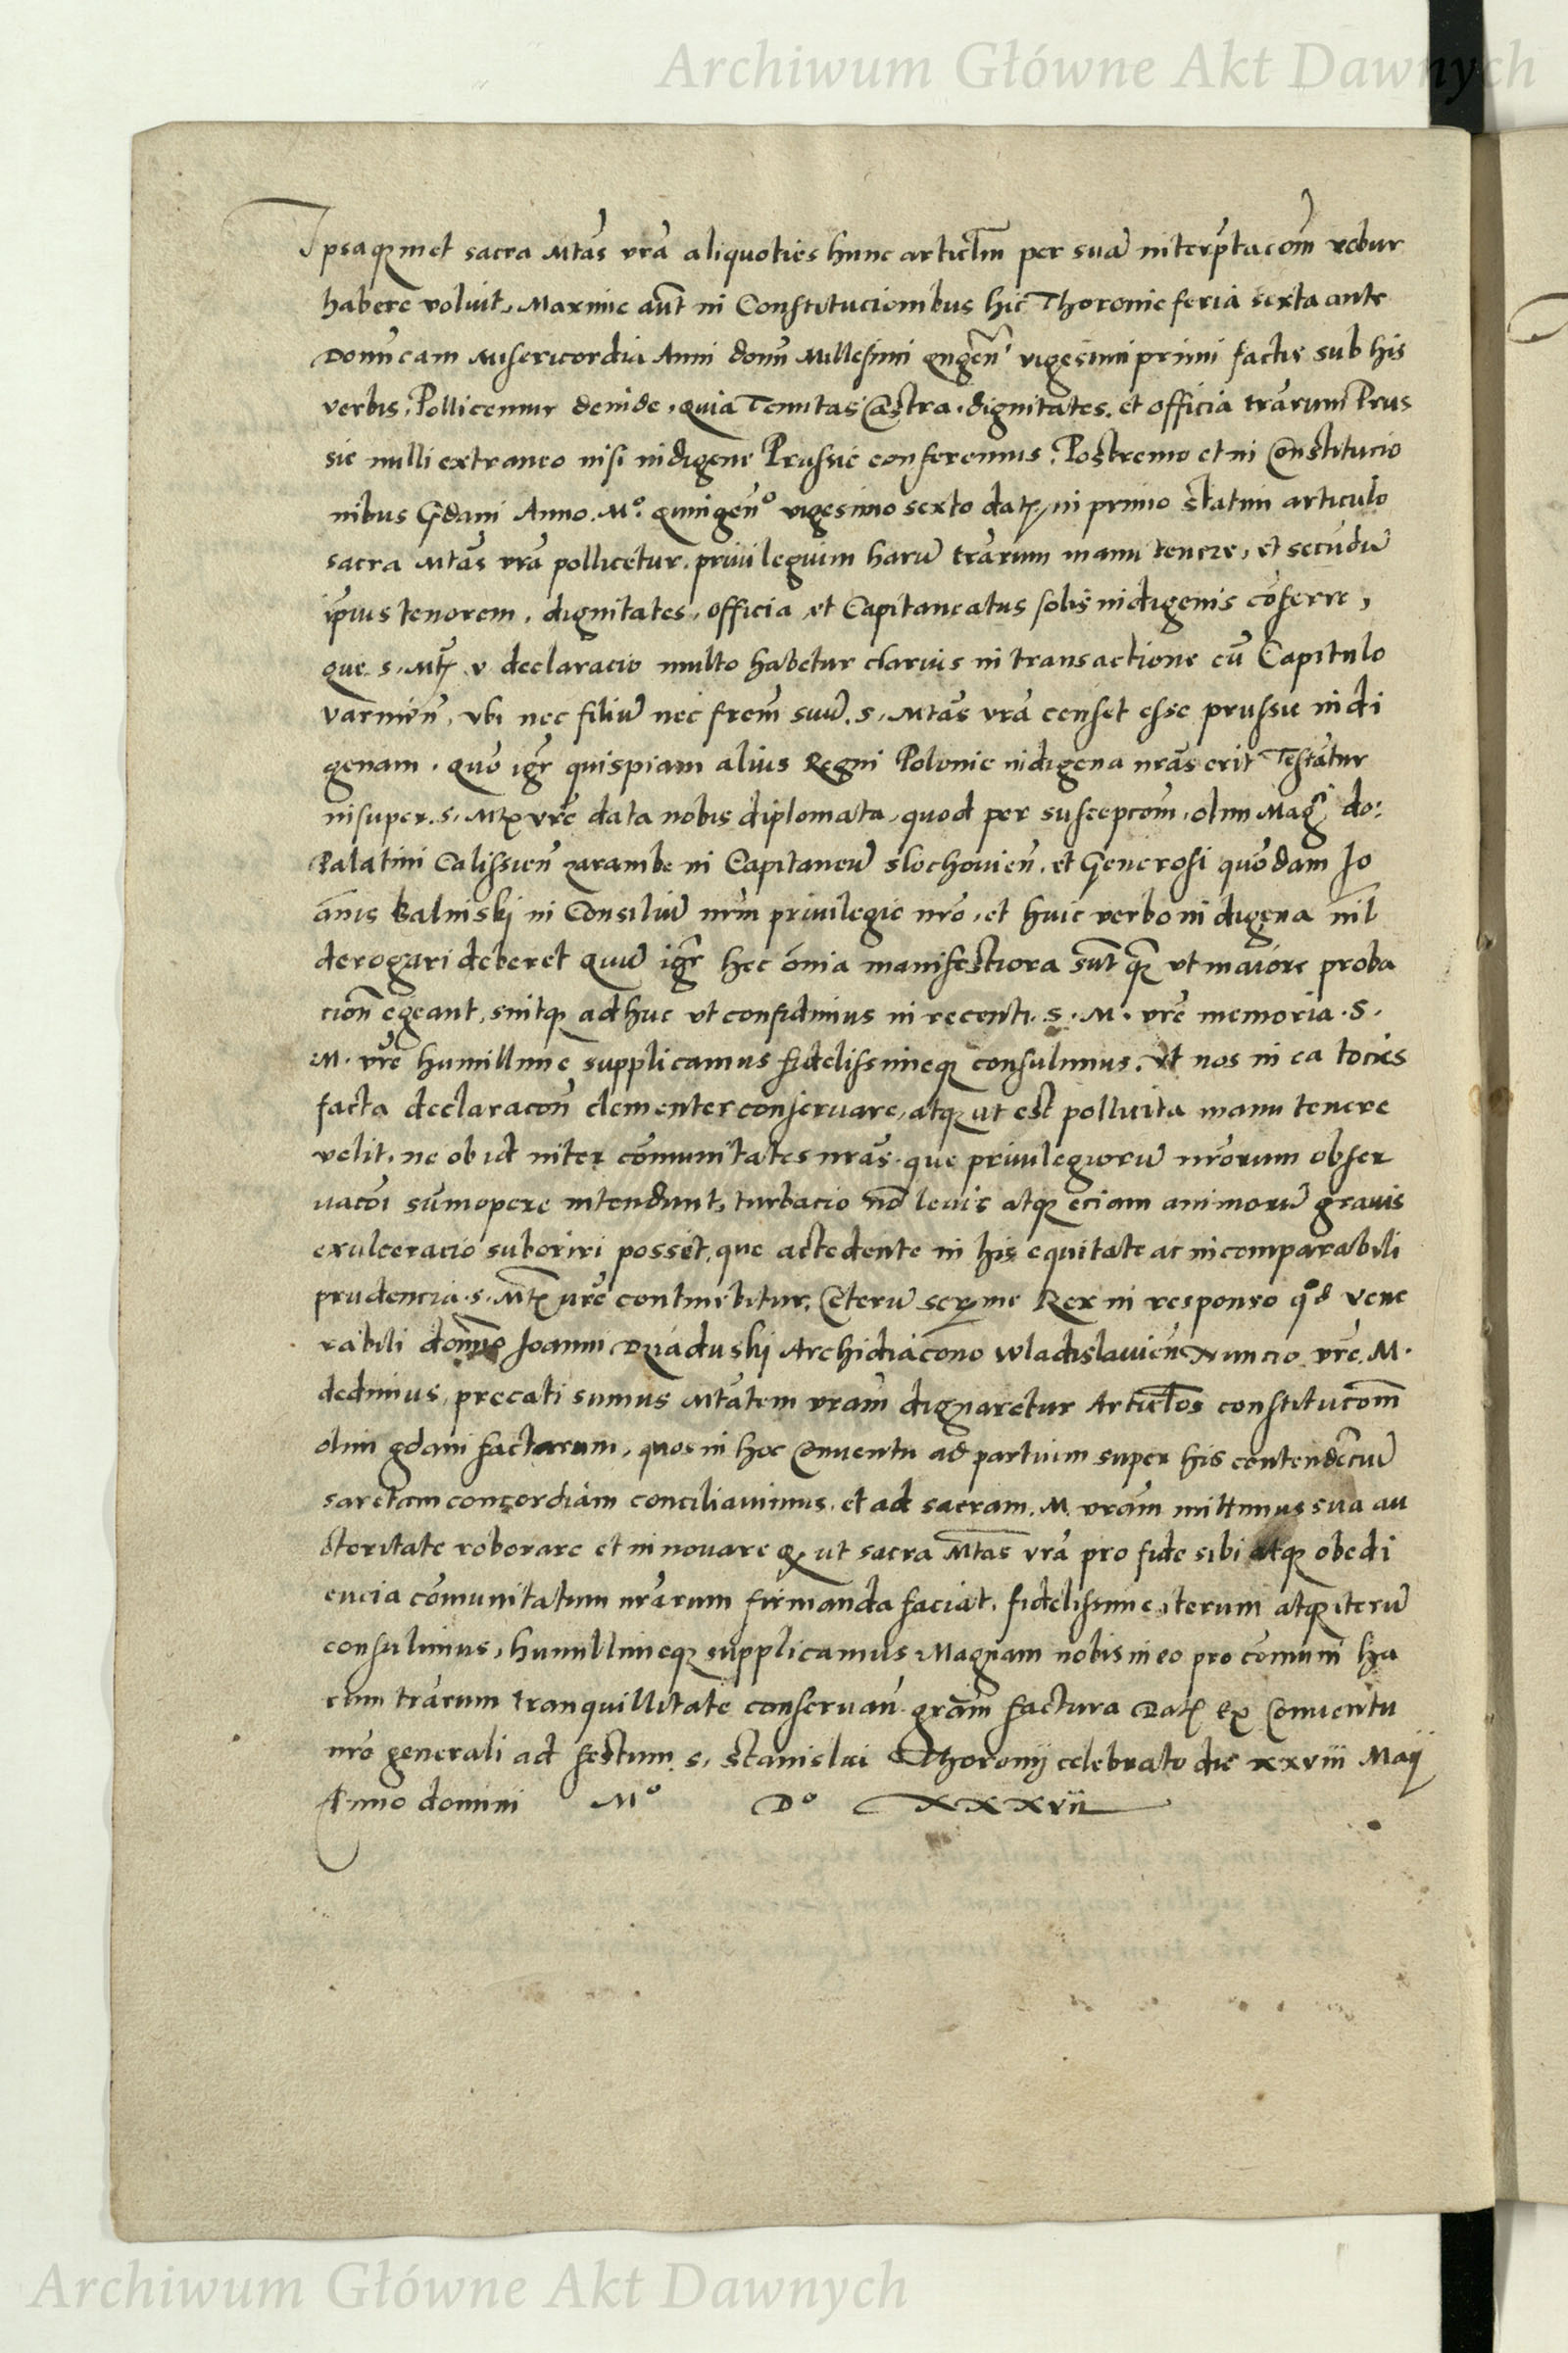 Archiwum Główne Akt Dawnych
Ipsaq̨met sacra Mtās vrā aliquoties hunc articl̄m per suā interp̄tacōm robur
habere voluit, Maxime aūt in Constitucionibus hic Thoronie feria sexta ante
Domīcam Misericordia Anni domī Millesimi qngēn vigesimi primi factis sub his
verbis, Pollicemur deinde, quia Tenutas Castra, dignitates, et officia trārum Prus
sie nulli extraneo nisi indigene Prussie conferemus, Postremo et in Constitucio
nibus Gdani Anno. Mº. quingenº vigesimo sexto datȝ, in primo statim articulo
sacra Mtās vrā pollicetur, privilegium harū trārum manu tenere, et secūdū
ip̄ius tenorem, dignitates, officia et Capitaneatus solis indigenis cōferre,
que s. Mtȝ v declaracio multo habetur clarius in transactione cū Capitulo
varmiēn, vbi nec filiū nec frem̄ suū. s. Mtās vrā censet esse prussie indi
genam. Quō igr̄ quispiam alius Regni Polonie indigena nrās erit Testātur
insuper. s. Mtȝ vrē data nobis diplomata, quod per suscepcōm, olim Magci do:
Palatini Calissieñ zarambe in Capitaneū slochovieñ, et Generosi quōdam Jo
ānis Balinskj in Consiliū nrm̄ privilegie nrō, et huic verbo indigena nil
derogari deberet Quū igr̄ hec ōnia manifestiora sūt q̨ȝ ut maiore proba
cion̄ egeant, sintq̨ adhuc vt confidimus in recenti. s. M. vrē memoria. S.
M. vrē humillime supplicamus fidelissimeq̨ consulimus. Vt nos in ea tocies
facta declaracōn clementer conseruare, atq̨ ut est pollicita manu tenere
velit, ne ob id inter cōmunitates nrās. que privilegiorū nrōrum obser
uacōi sūmopere intendunt, turbacio nō levis atq̨ eciam animorū gravis
exulceracio suboriri posset, que accedente in his equitate ac incomparabili
prudencia. s. Mtȝ vrē continebitur, Ceterū serme Rex in responso q̊d vene
rabili domīo Joanni Dziaduskj Archidiacōno Wladislauieñ Nuncio vrē. M.
dedimus, precati sumus Mtātem vrām dignaretur Articl̄os constitucōm
olim gdani factarum, quos in hoc Conventu ad partium super his contendēciū
sarctam concordiam conciliauimus, et ad sacram. M. vrām mittimus sua au
ctoritate roborare et innovare q̨ ut sacra Mtās vrā pro fide sibi atq̨ obedi
encia cōmunitatum nrārum firmanda faciat. fidelissime, iterum atq̨ iterū
consulimus, humillimeq̨ supplicamus Magnam nobis in eo pro cōmuni ha
rum trārum tranquillitate conseruañ grām factura Datȝ Ex Conventu
nrō generali ad festum s. stanislai Thorunij celebrato die xxviii Maij
Anno domini Mº Dº xxxvii
Archiwum Główne Akt Dawnych